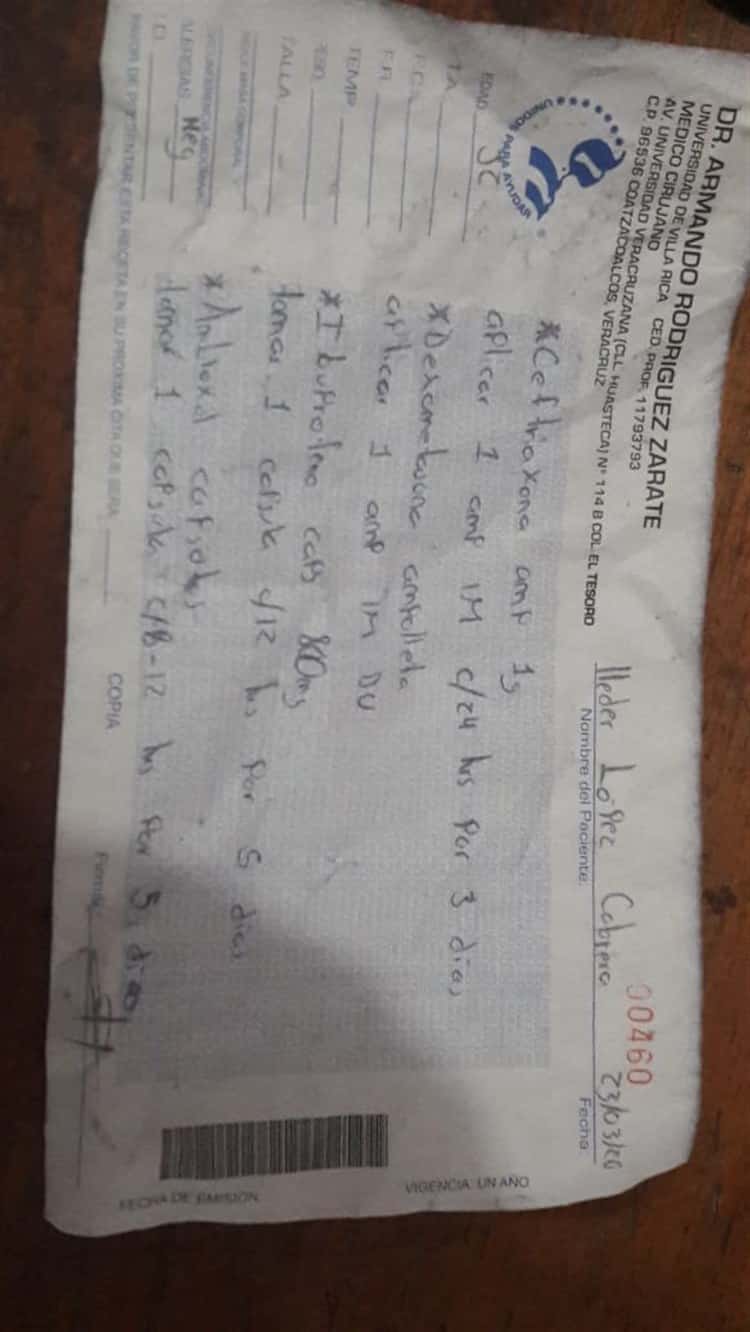 DR. ARMANDO RODRIGUEZ ZARATE
UNIVERSIDAD DE VILLA RICA CED. PROF. 11793793
MEDICO CIRUJANO
AV. UNIVERSIDAD VERACRUZANA (CLL. HUASTECA) N° 114 B COL. EL TESORO
C.P. 96536 COATZACOALCOS, VERACRUZ
UNIDOS PARA AYUDAR
00460
López Cabrera 23/03/20
Nombre del Paciente: Fecha:
EDAD
T.A.
F.C.
F.R.
TEMP.
TALLA
ALERGIAS Neg
*Ceftriaxona amp 1g
aplicar 1 amp IM c/24 hrs por 3 dias
*Dexametasona ampolleta
aplicar 1 amp IM DU
*Ibuprofeno caps 800mg
tomar 1 capsula c/12 hs por 5 dias
capsulas
tomar 1 capsula c/8-12 hs por 5 dias
FAVOR DE PRESENTAR ESTA RECETA EN SU PROXIMA CITA QUE SERA
COPIA
Firma:
VIGENCIA: UN AÑO
FECHA DE EMISIÓN